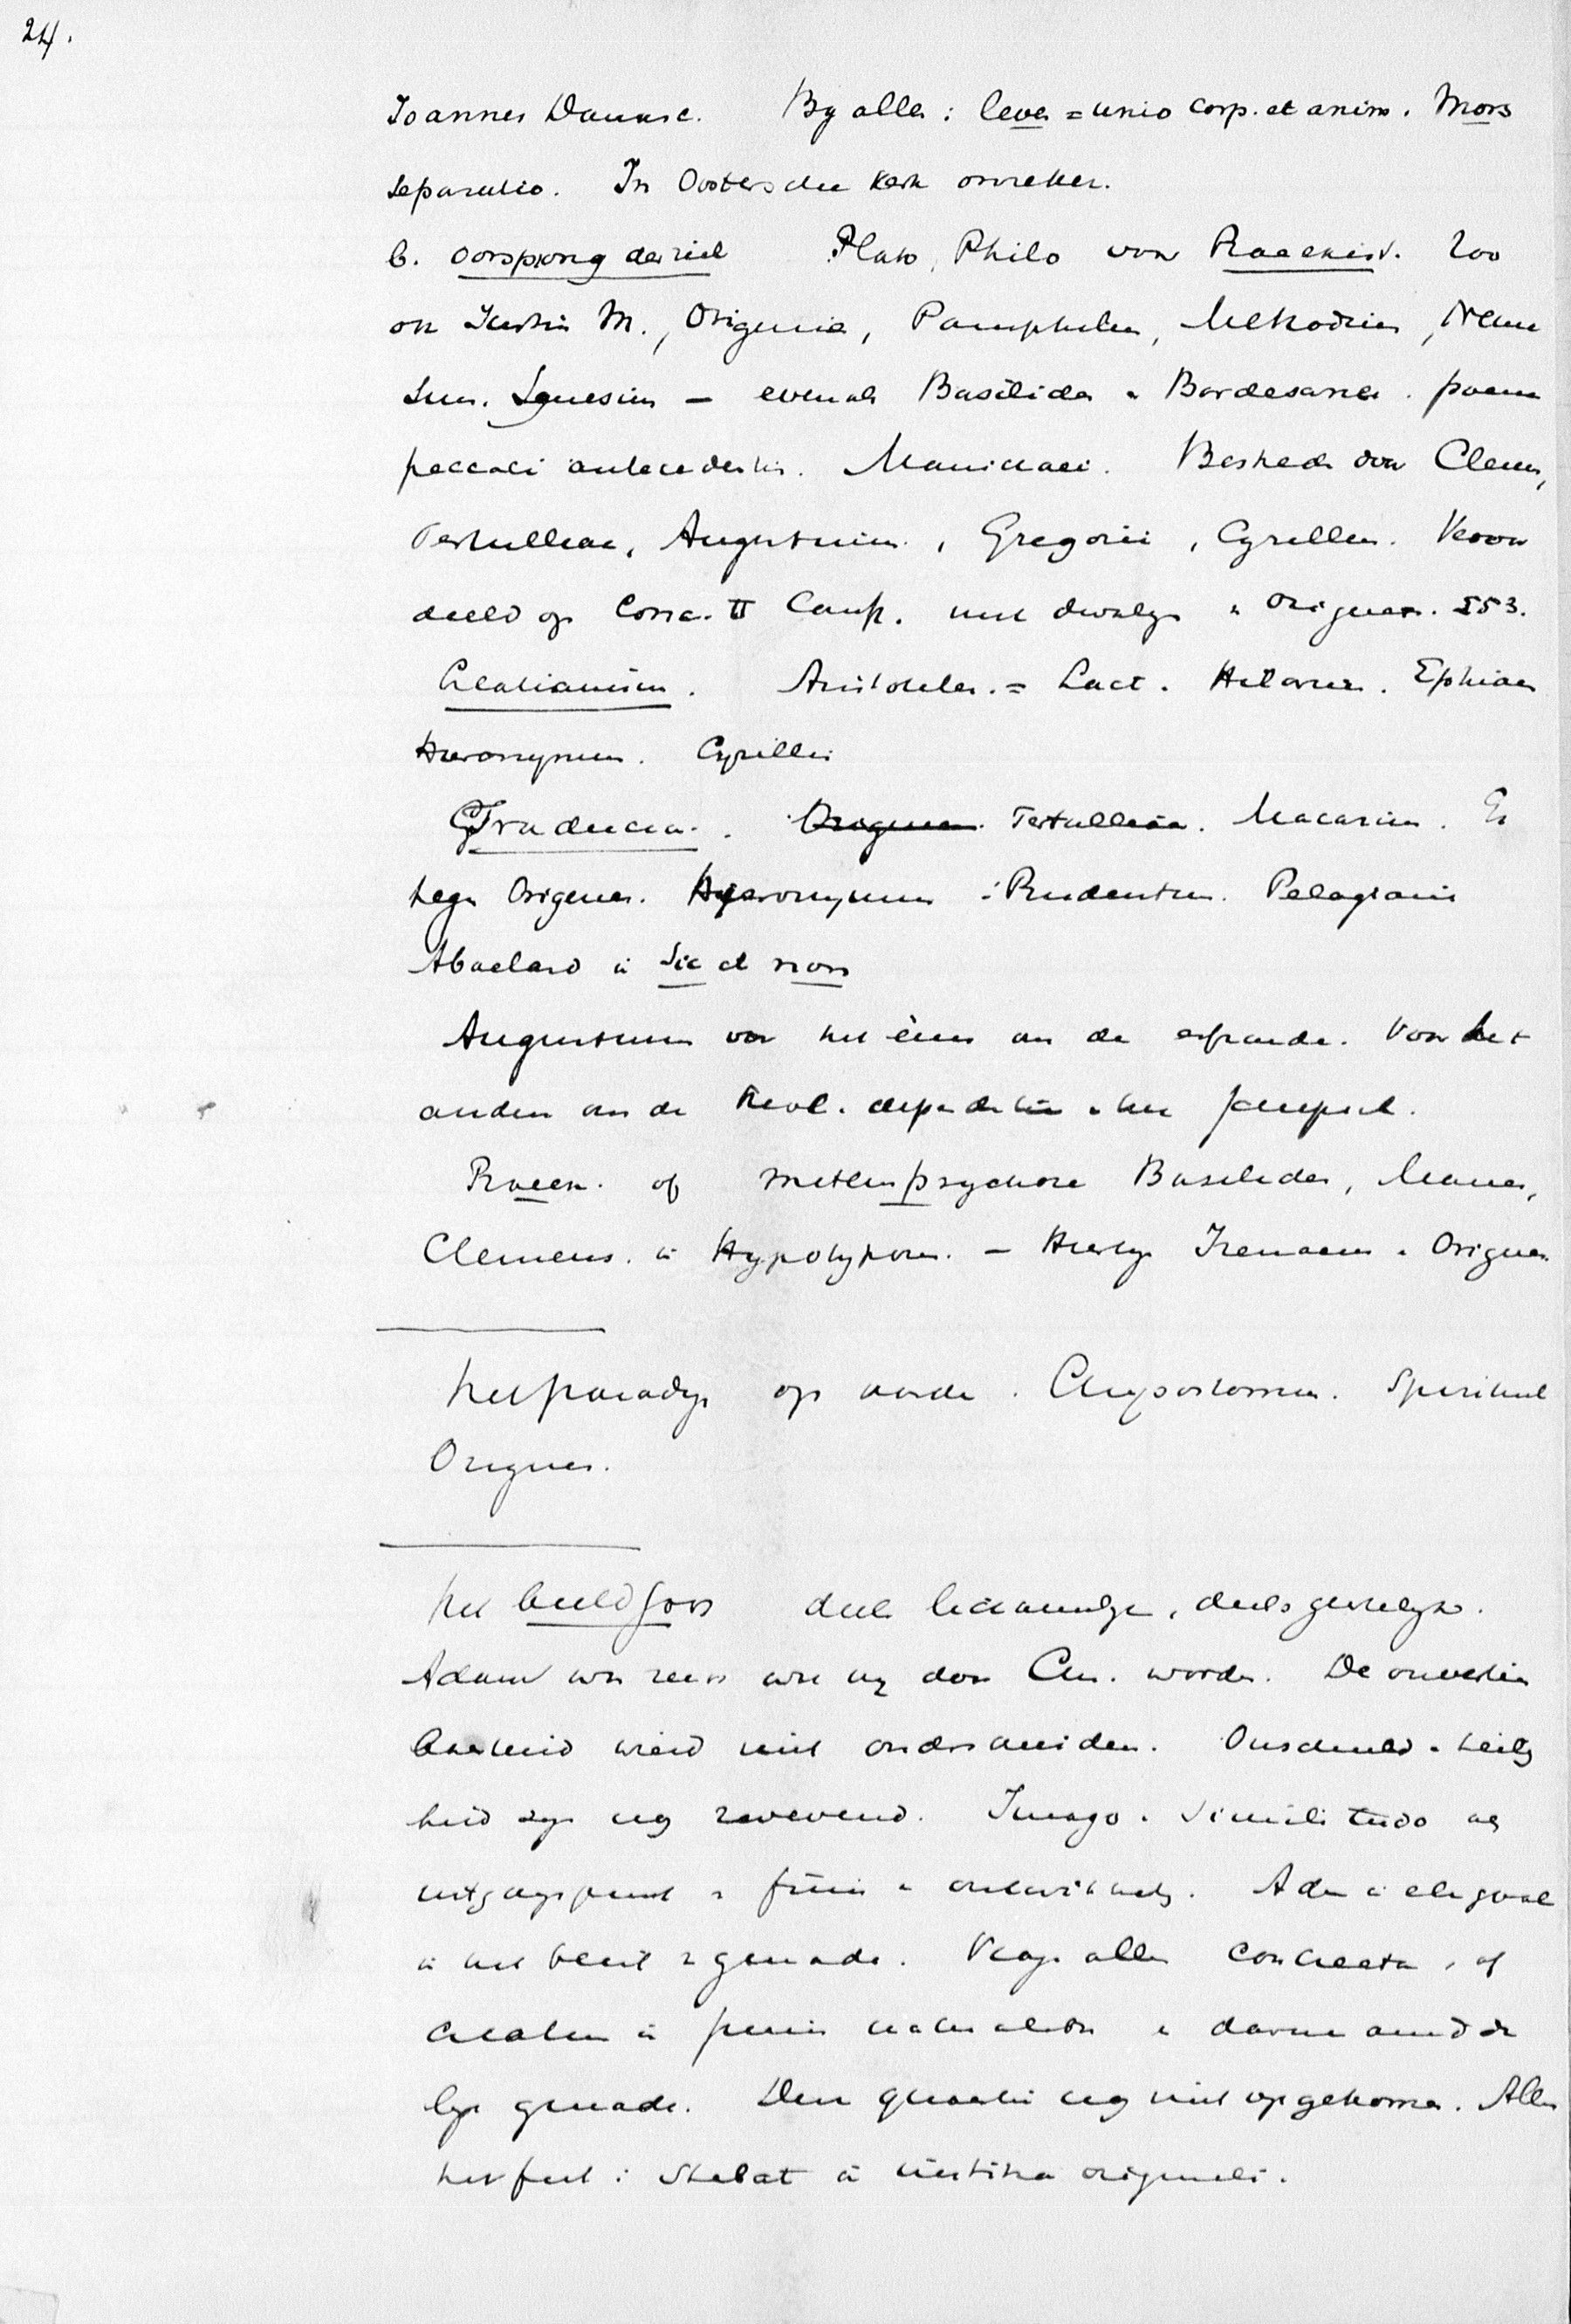 24.
Joannes Damasc. By alle : leven = unio corp. et anim. Mors
separatio. In Oostersche kerk
b. oorsprong der ziel Plato, Philo voor Praeexist. Zoo
ook Justin M., Origenes, Pamphilus, Methodius, Neme
sius. Synesius – evenals Basilides & Bardesanes. poena
peccati antecedentis. Manichaei. Bestreden door Clem,
Tertulliaan, Augustinus, Gregorii, Cyrillus. Veroor
deeld op Conc. II Const. met dwaling v Origenes. 553.
Creatianisme. Aristoteles. = Lact. Hilarius. Ephraem
Hieronymus. Cyrillus
Traducia. . Origenes. Tertulliaan. Macarius. En
tegen Origenes. Hyeronymus : Prudentius. Pelagiani
Abaelard in Sic et non
Augustinus voor het eene om de erfzonde. Voor het
andere om de
Praeex. of metempsychose Basilides, Manes,
Clemens. in Hypotypose. – Hiertegen Irenaeus & Origenes
het paradys op aarde. Chrysostomus. Spiritueel
Origenes.
het beeld Gods deels lichamelyk, deels geestelyk.
Adam was reeds wat wy door Chr. worden. De onverlies
baarheid werd niet onderscheiden. Onschuld & heilig
heid zyn nog zwevend. Imago & similitudo als
uitgangspunt v finis v ontwikkeling. Adam in elk geval
in het bezit v genade. Vraag alleen concreata, of
creatus in puris naturalibus & daarna
lyke genade. Deze quaestie nog niet opgekomen. Alleen
het feit : Stabat in iustitia originali.